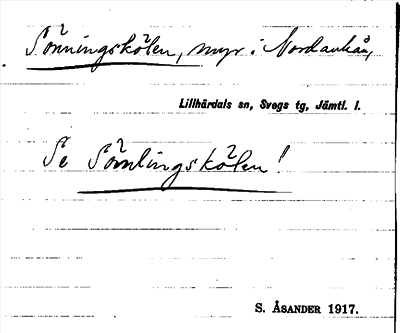 Sönningskölen, myr i Nordanhån,
Lillhärdals sn, Svegs tg, Jämtl. l.
Se Sömlingskölen!
S. ÅSANDER 1917.